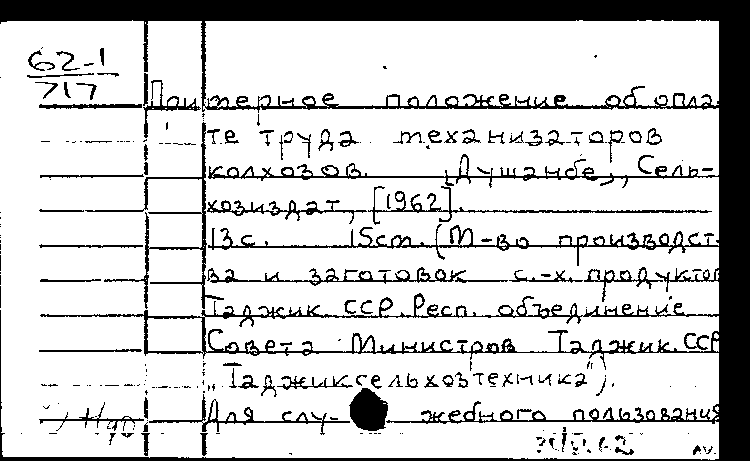 62-1
717
Примерное положение об опла-
те труда механизаторов
колхозов. [Душанбе], Сель-
хозиздат, [1962].
13 с. 15 cm. (М-во производст-
ва и заготовок с.-х. продуктов
Таджик. ССР. Респ. объединение
Совета Министров Таджик. ССР
„Таджиксельхозтехника").
Для слу- жебного пользования